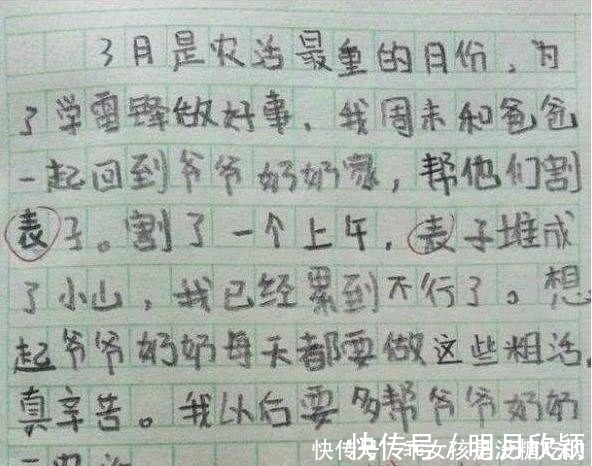 3月是农活最重的月份,为
了学雷锋做好事,我周末和爸爸
一起回到爷爷奶奶家,帮他们割
表子。割了一个上午,表子堆成
了小山,我已经累到不行了。想
起爷爷奶奶每天都要做这些粗活,
真辛苦。我以后要多帮爷爷奶奶
快传号/明月欣颖